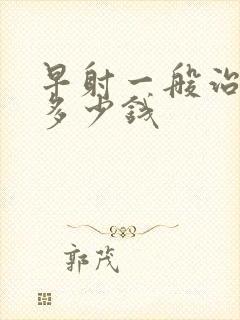 早射一般治
多少钱
郭茂